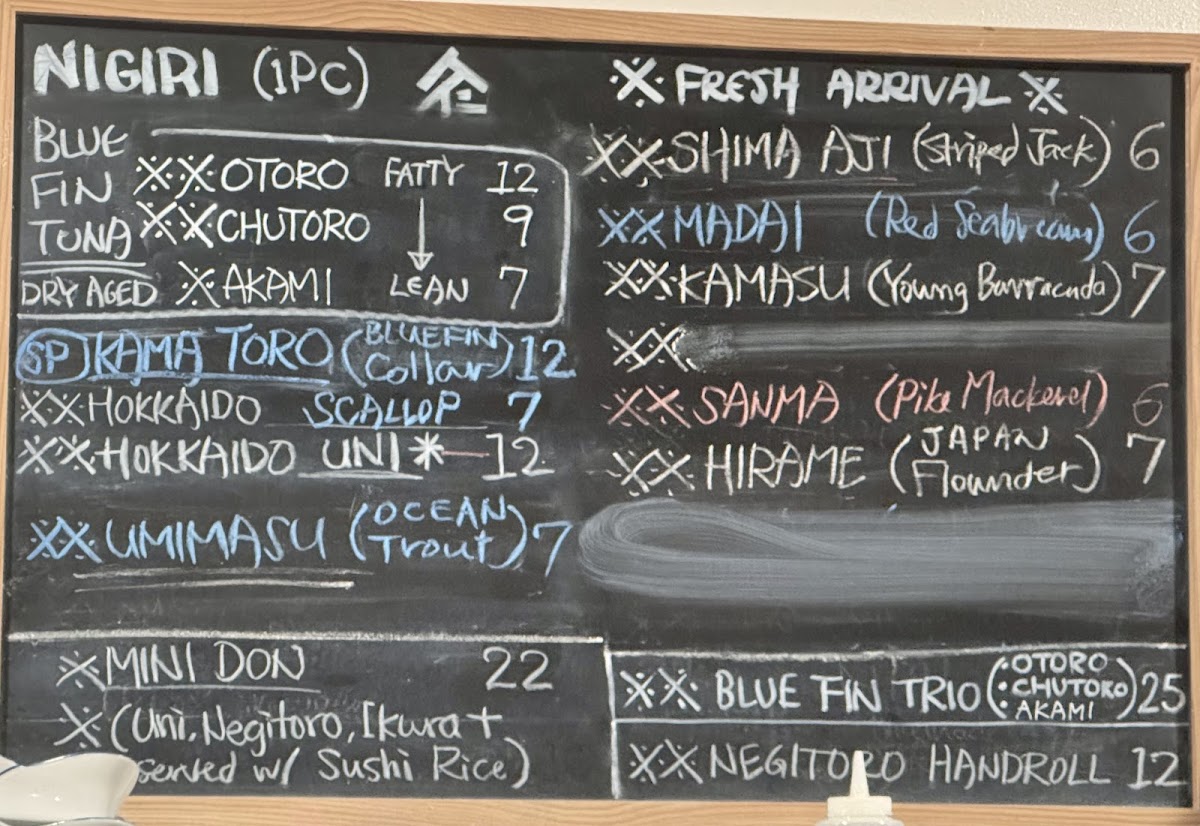 NIGIRI (1PC)
BLUE FIN TUNA
DRY AGED
※※OTORO FATTY 12
※※CHUTORO 9
※AKAMI LEAN 7
SP KAMA TORO (BLUEFIN Collar) 12
※※HOKKAIDO SCALLOP 7
※※HOKKAIDO UNI* 12
※※UMIMASU (OCEAN Trout) 7
※MINI DON 22
※(Uni, Negitoro, Ikura +
served w/ Sushi Rice)
※ FRESH ARRIVAL ※
※※SHIMA AJI (Striped Jack) 6
※※MADAI (Red Seabream) 6
※※KAMASU (Young Barracuda) 7
※※
※※SANMA (Pike Mackerel) 6
※※HIRAME (JAPAN Flounder) 7
※※ BLUE FIN TRIO (•OTORO •CHUTORO •AKAMI) 25
※※NEGITORO HANDROLL 12